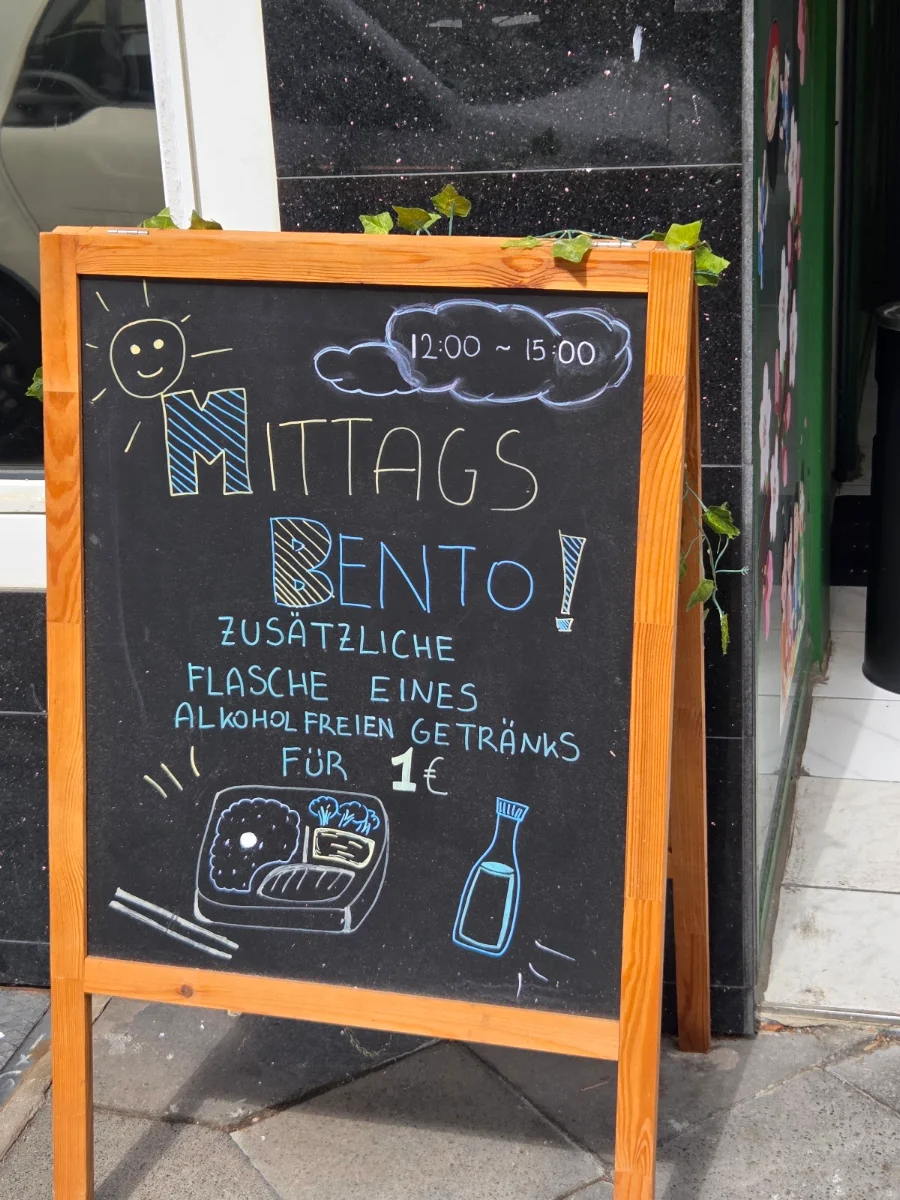 12:00 ~ 15:00
MITTAGS
BENTO!
ZUSÄTZLICHE
FLASCHE EINES
ALKOHOLFREIEN GETRÄNKS
FÜR 1€